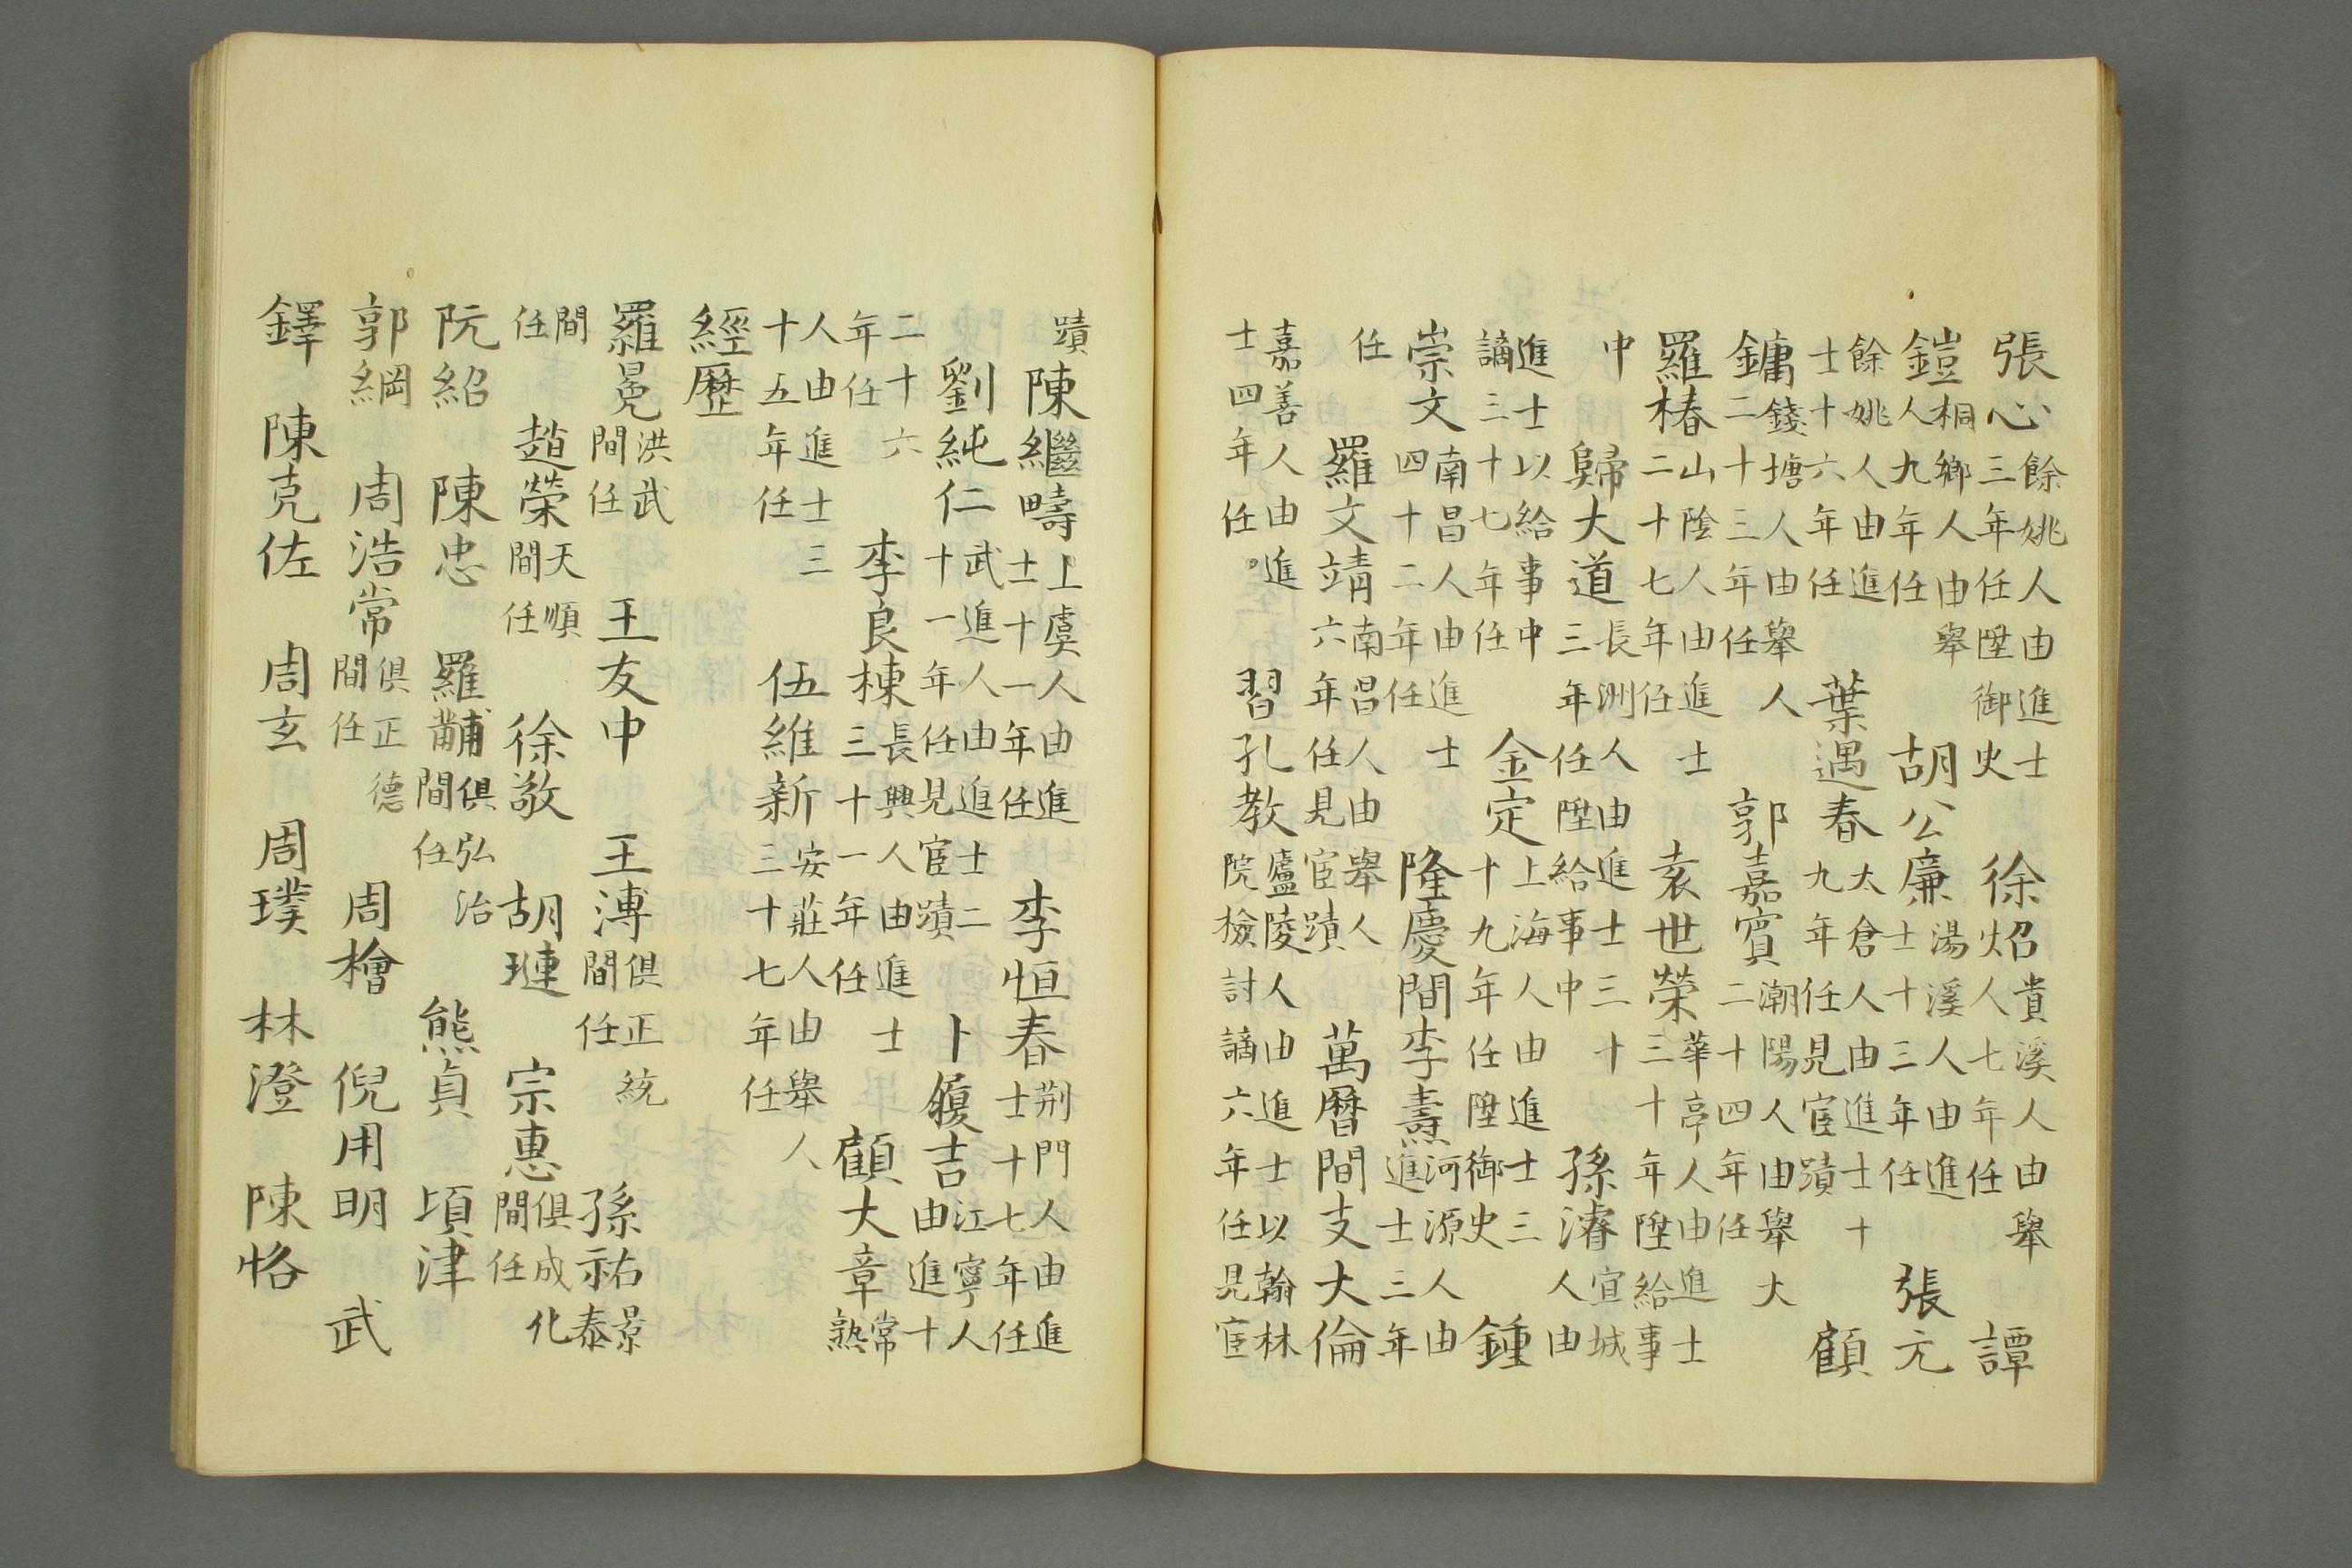 張心餘姚人由進士三年任陞御史徐炤貴溪人由舉人七年任譚
鎧桐鄉人由舉人九年任胡公廉湯溪人由進士十三年任張元
餘姚人由進士十六年任葉遇春太倉人由進士十九年任見宦蹟顧
鏞錢塘人由舉人二十三年任郭嘉賓潮陽人由舉大二十四年任
羅椿山陰人由進士二十七年任袁世榮華亭人由進士三十年陞給事
中歸大道長洲人由進士三十三年任陞給事中孫濬宣城人由
進士以給事中謫三十七年任金定上海人由進士三十九年任陞御史鍾
崇文南昌人由進士四十二年任隆慶間李燾河源人由進士三年
任羅文靖南昌人由舉人六年任見宦蹟萬曆間支大倫
嘉善人由進士四年任。習孔教廬陵人由進士以翰林院檢討謫六年任見宦
蹟陳繼疇上虞人由進士十一年任李恒春荆門人由進士十七年任
劉純仁武進人由進士二十一年任見宦蹟卜履吉江寧人由進十
二十六年任李良棟長興人由進士三十一年任顧大章常熟
人由進士三十五年任伍維新安莊人由舉人三十七年任
經歷
羅冕洪武間任王友中王溥俱正統間任孫祐景泰
間任趙榮天順間任徐敬胡璉宗惠俱成化間任
阮紹陳忠羅黼俱弘治間任熊貞項津
郭綱周浩常俱正德間任周檜倪用明武
鐸陳克佐周玄周璞林澄陳恪